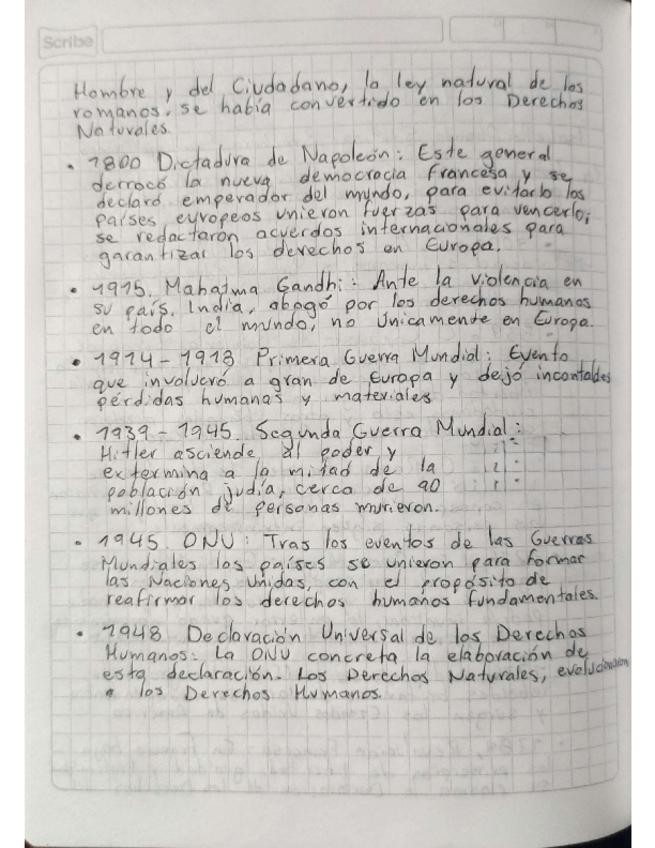 Scribe
Hombre y del Ciudadano, la ley natural de los
romanos, se había convertido en los Derechos
Naturales.
• 1800 Dictadura de Napoleón: Este general
derrocó la nueva democracia francesa y se
declaró emperador del mundo, para evitarlo los
países europeos unieron fuerzas para vencerlo;
se redactaron acuerdos internacionales para
garantizar los derechos en Europa.
• 1915. Mahatma Gandhi: Ante la violencia en
su país, India, abogó por los derechos humanos
en todo el mundo, no únicamente en Europa.
• 1914-1918 Primera Guerra Mundial: Evento
que involucró a gran de Europa y dejó incontables
pérdidas humanas y materiales
• 1939-1945 Segunda Guerra Mundial:
Hitler asciende al poder y
extermina a la mitad de la
población judía, cerca de 90
millones de personas murieron.
• 1945 ONU: Tras los eventos de las Guerras
Mundiales los países se unieron para formar
las Naciones Unidas, con el propósito de
reafirmar los derechos humanos fundamentales.
• 1948 Declaración Universal de los Derechos
Humanos: La ONU concreta la elaboración de
esta declaración. Los Derechos Naturales, evolucionan
a los Derechos Humanos.